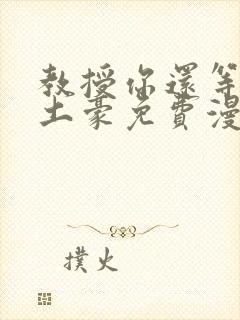 教授你還等
土豪免費漫
撲火